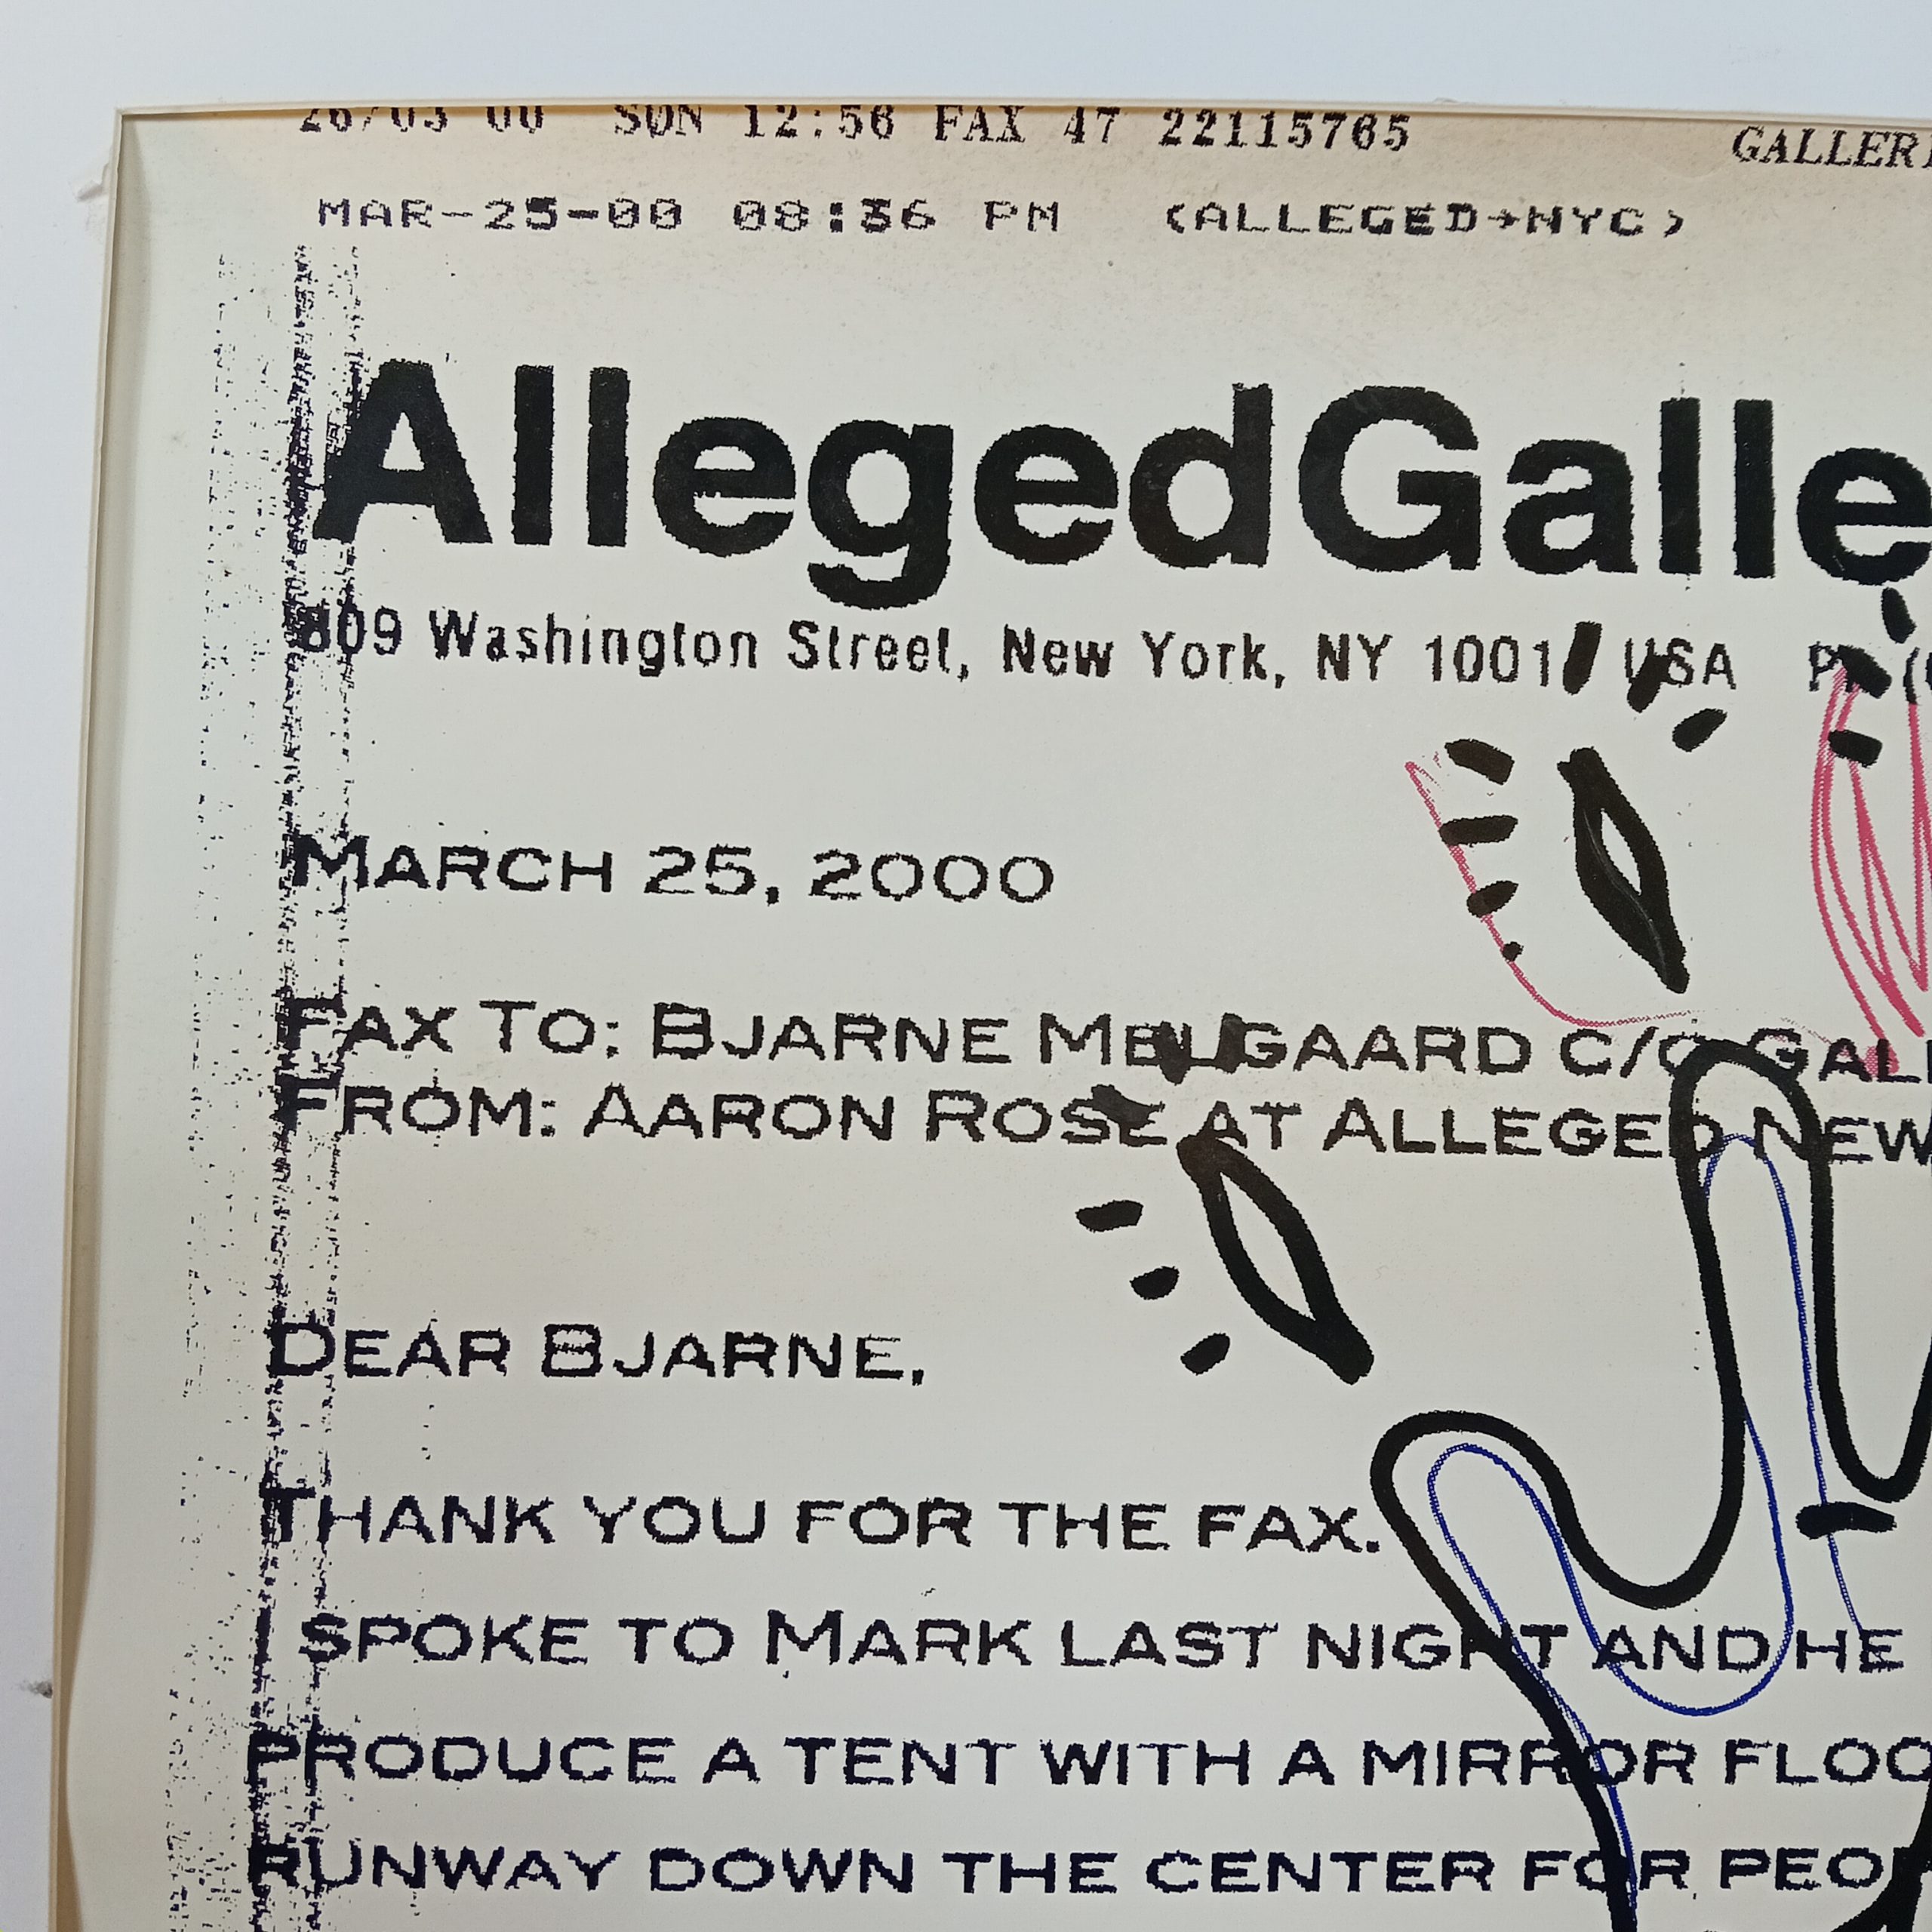 26/03 00 SUN 12:56 FAX 47 22115765 GALLERI
MAR-25-00 08:36 PM (ALLEGED→NYC)
AllegedGalle
809 Washington Street, New York, NY 1001 USA
MARCH 25, 2000
FAX TO: BJARNE MELGAARD C/O GALL
FROM: AARON ROSE AT ALLEGED NEW
DEAR BJARNE,
THANK YOU FOR THE FAX.
SPOKE TO MARK LAST NIGHT AND HE
PRODUCE A TENT WITH A MIRROR FLOO
RUNWAY DOWN THE CENTER FOR PEOP